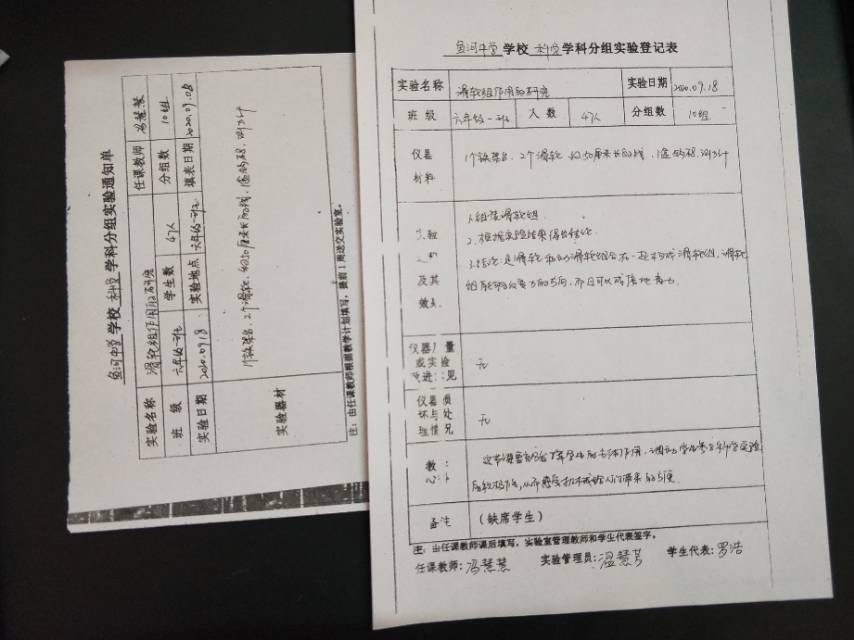 鱼河中学 学校 科学 学科分组实验通知单
实验名称 滑轮组作用的研究 任课教师 冯慧慧
班级 六年级一班 学生数 47人 分组数 10组
实验日期 2020.09.18 实验地点 六年级一班 填表日期 2020.09.08
实验器材 1个铁架台、2个滑轮、约50厘米长的线、1盒钩码、测力计
注:由任课教师根据教学计划填写,提前1周送交实验室。
鱼河中学 学校 科学 学科分组实验登记表
实验名称 滑轮组作用的研究 实验日期 2020.09.18
班级 六年级一班 人数 47人 分组数 10组
仪器
材料
1个铁架台、2个滑轮、约50厘米长的线、1盒钩码、测力计
及其
1.组装滑轮组.
2.根据实验结果得出结论.
3.结论:定滑轮和动滑轮组合在一起构成滑轮组,滑轮
组能够改变力的方向,而且可以或度地省力.
或实验
无
仪器
坏与处
理情况
无
这节课要
备注 (缺席学生)
注:由任课教师课后填写,实验室管理教师和学生代表签字。
任课教师:冯慧慧 实验管理员:温慧芳 学生代表:罗浩